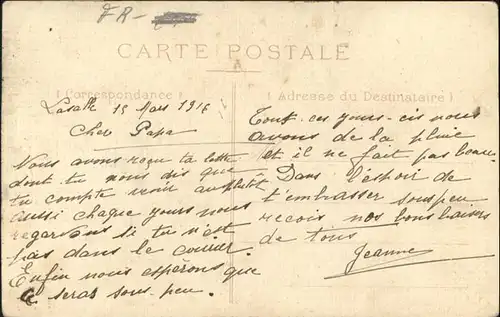 FR-
CARTE POSTALE
Correspondance
Adresse du Destinataire
Lasalle 15 Mars 1916
Cher Papa
Nous avons reçu ta lettre
dont tu nous dis que
tu compte venir au plutôt
aussi chaque yours nous
regardons si tu n'est
pas dans le courrier.
Enfin nous espérons que
ce seras sous-peu.
Tout-ces yours-cis nous
avons de la pluie
et il ne fait pas beau.
Dans l'espoir de
t'embrasser sous peu
reçois nos bons baisers
de tous
Jeanne